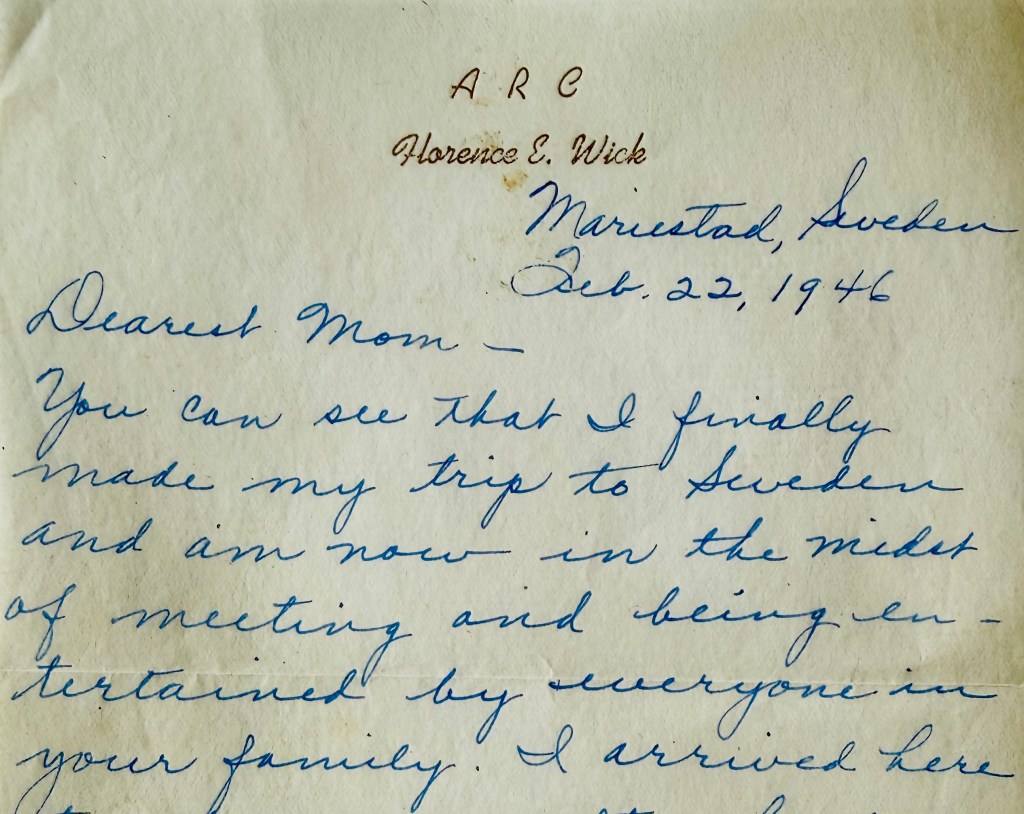 A R C
Florence E. Wick
Mariestad, Sweden
Feb. 22, 1946
Dearest Mom —
You can see that I finally
made my trip to Sweden
and am now in the midst
of meeting and being en-
tertained by everyone in
your family. I arrived here